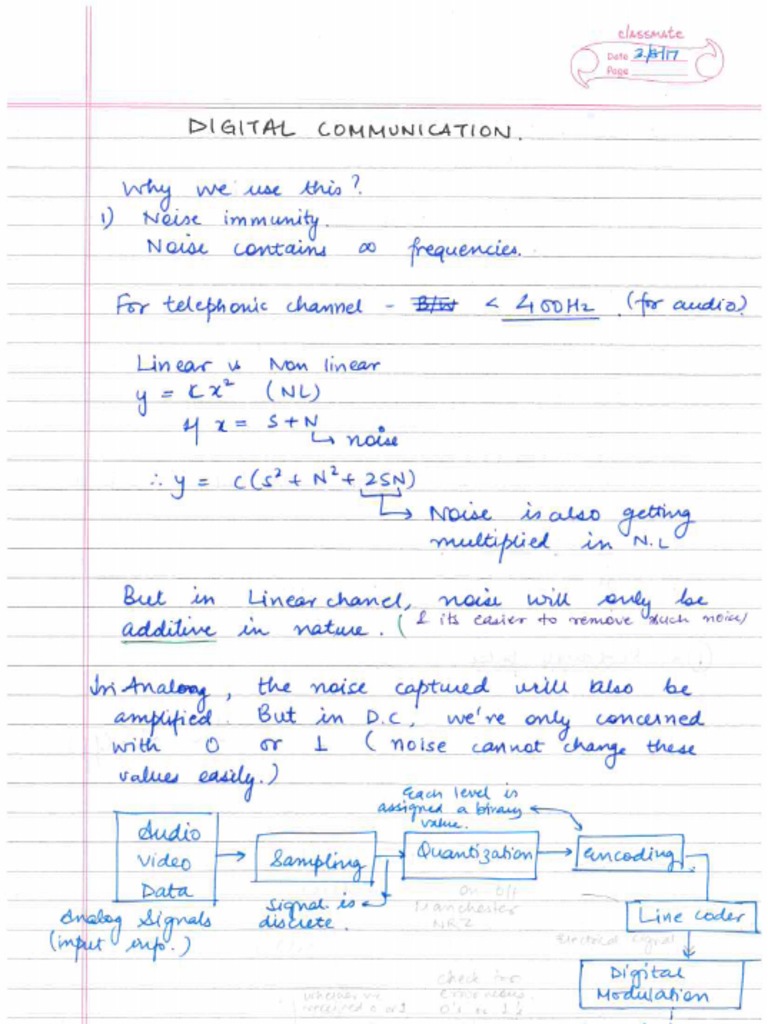 classmate
Date 2/8/17
Page
DIGITAL COMMUNICATION.
Why we use this?
1) Noise immunity.
Noise contains ∞ frequencies.
For telephonic channel - B/W < 400Hz (for audio)
Linear vs Non linear
y = cx² (NL)
If x = S+N
↳ noise
∴ y = c(S² + N² + 2SN)
↳ Noise is also getting
multiplied in N.L
But in Linear channel, noise will only be
additive in nature. (& its easier to remove such noise)
In Analog, the noise captured will also be
amplified. But in D.C, we're only concerned
with 0 or 1 (noise cannot change these
values easily.)
Each level is
assigned a binary
value.
Audio
Video
Data
Sampling
Quantization
Encoding
Signal is
discrete.
Analog Signals
(input info.)
Manchester
NRZ
Line coder
Electrical signal
Digital
Modulation
check for
erroneous
0's or 1's
whether we
received 0 or 1